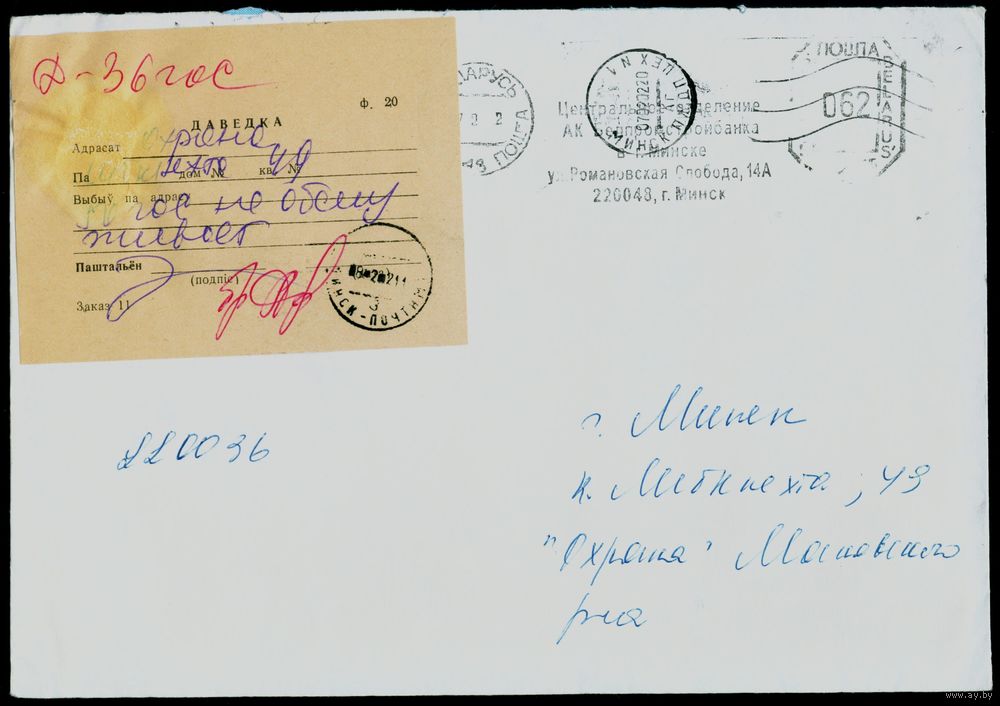 Д-36 гос
ф. 20
ДАВЕДКА
Адрасат охрана
Па дом № 49 кв. №
Выбыў па адрас
гос не обслу
живает
Паштальён
(подпіс)
Заказ 11
МИНСК-ПОЧТАМТ
3
ПОШТА
Центральное отделение
АК Белпромстройбанка
в г. Минске
ул. Романовская Слобода, 14А
220048, г. Минск
МИНСК
ПОШТА
062
BELARUS
220036
г. Минск
К. Либкнехта, 49
"Охрана" Московского
р-на
www.ay.by